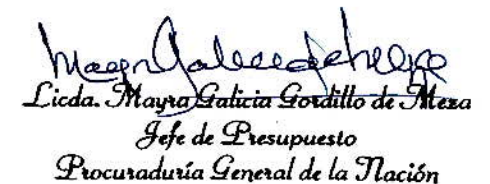 Licda. Mayra Galicia Gordillo de Meza
Jefe de Presupuesto
Procuraduría General de la Nación